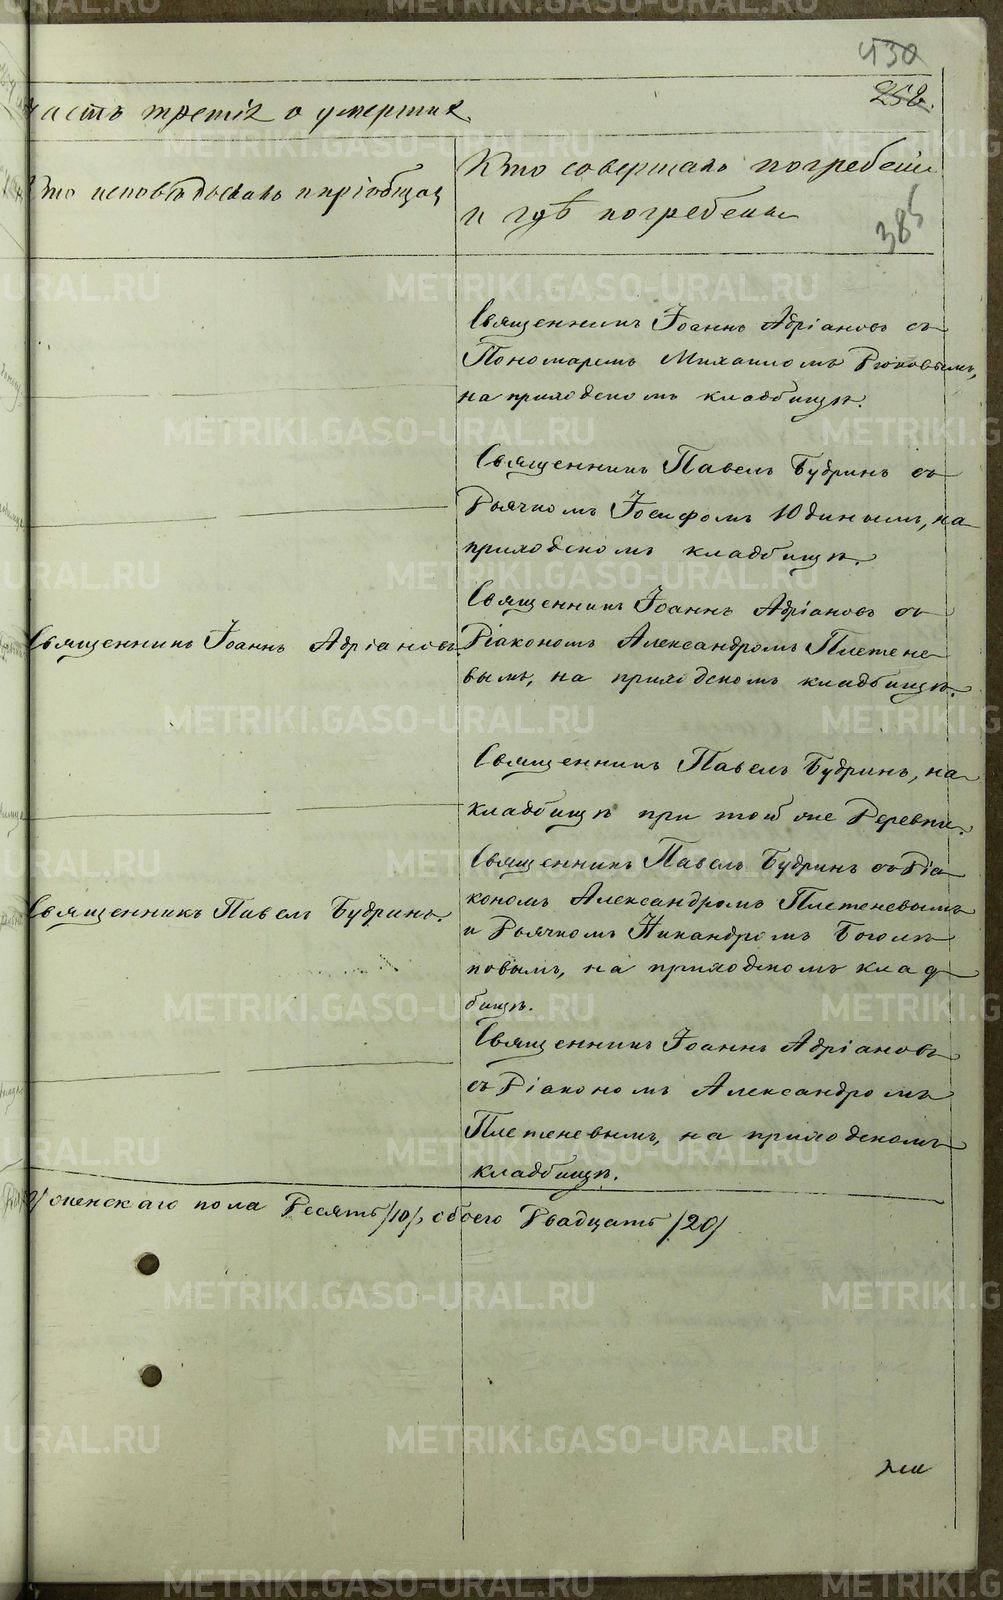 430
252.
Часть третія о умершихъ
Кто исповѣдывалъ и пріобщалъ
Кто совершалъ погребеніе
и гдѣ погребены
385
Священникъ Іоаннъ Адріановъ съ
Пономаремъ Михаиломъ
на приходскомъ кладбищѣ.
Священникъ Павелъ Будринъ съ
Дьячкомъ Іосифомъ Юдинымъ, на
приходскомъ кладбищѣ.
Священникъ Іоаннъ Адріановъ
Священникъ Іоаннъ Адріановъ съ
Діакономъ Александромъ Плетене
вымъ, на приходскомъ кладбищѣ.
Священникъ Павелъ Будринъ, на
кладбищѣ при той же Деревни.
Священникъ Павелъ Будринъ.
Священникъ Павелъ Будринъ съ Діа
кономъ Александромъ Плетеневымъ
и Дьячкомъ Никандромъ Боголѣ
повымъ, на приходскомъ клад
бищѣ.
Священникъ Іоаннъ Адріановъ
съ Діакономъ Александромъ
Плетеневымъ, на приходскомъ
кладбищѣ.
женскаго пола Десять /10/, обоего Двадцать /20/
METRIKI.GASO-URAL.RU